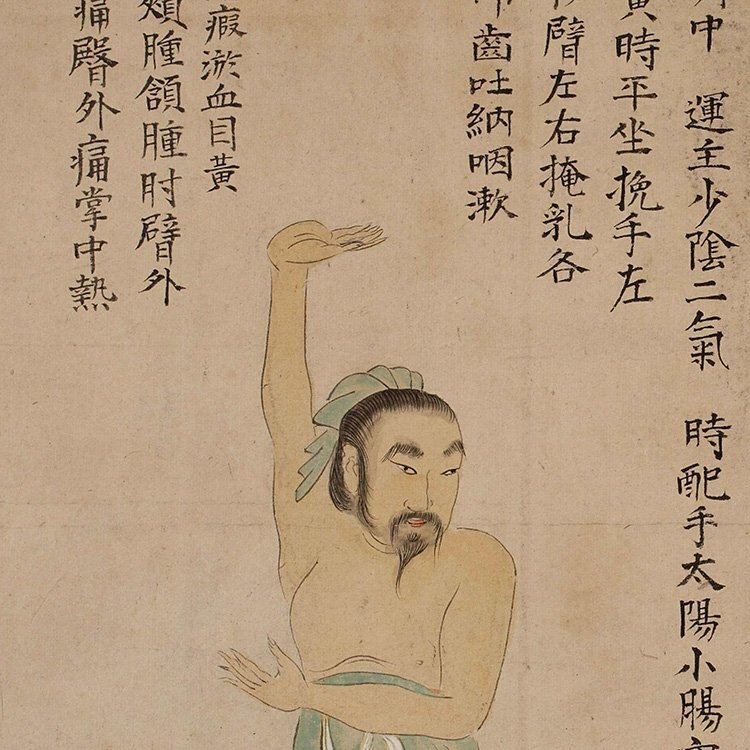 中 運主少陰二氣 時配手太陽小腸
寅時平坐挽手左
臂左右掩乳各
叩齒吐納咽漱
瑕淤血目黃
頰腫頷腫肘臂外
痛臀外痛掌中熱